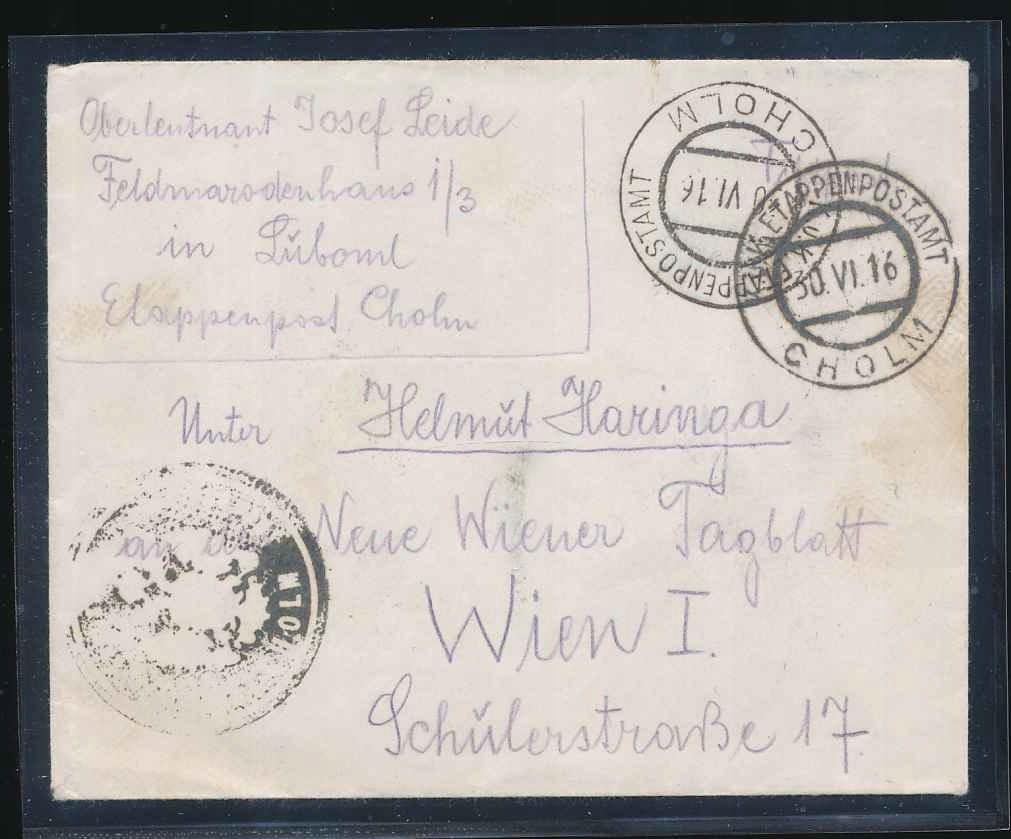 Oberleutnant Josef Leide
Feldmarodenhaus 1/3
in Lŭboml
Etappenpost Cholm
CHOLM
ETAPPENPOSTAMT
VI.16
K.u.K. ETAPPENPOSTAMT
30.VI.16
CHOLM
Unter Helmŭt Haringa
an das Neue Wiener Tagblatt
Wien I.
Schŭlerstraße 17.